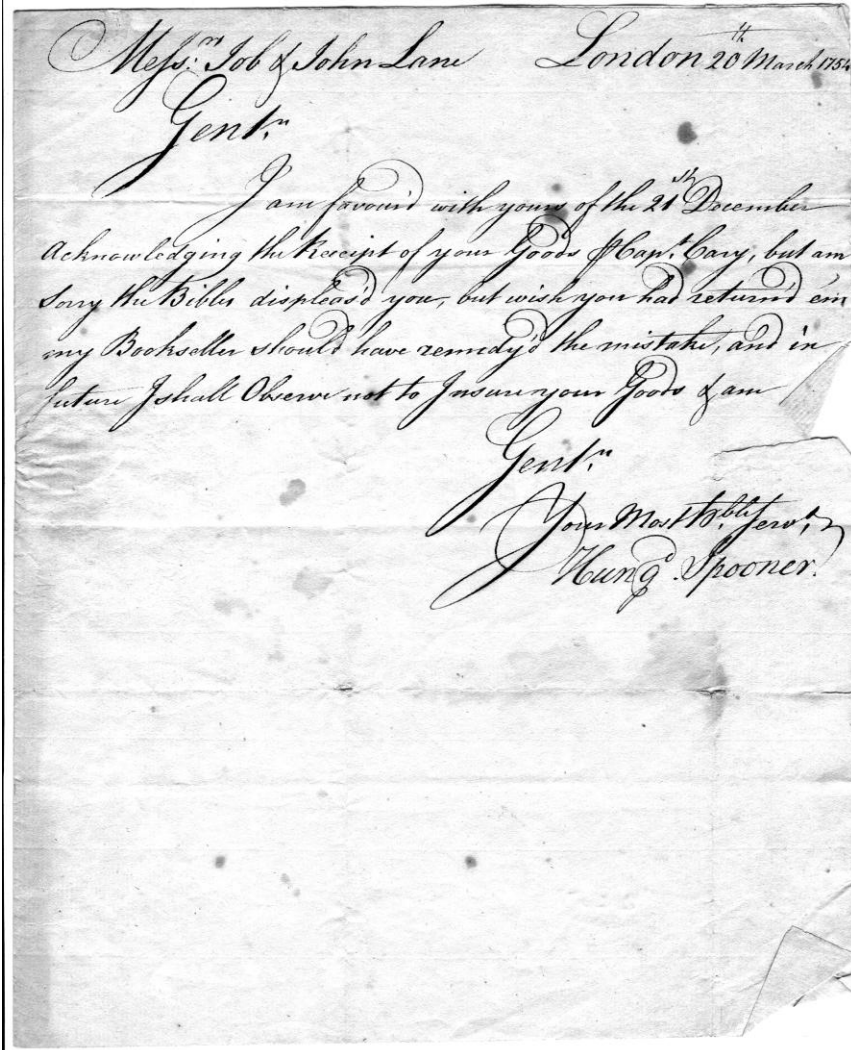 Messrs Job & John Lane London 20th March 1754
Gentn
I am favour'd with yours of the 21st December
Acknowledging the Receipt of your Goods ⅌ Capt. Cary, but am
Sorry the Bibles displeas'd you, but wish you had return'd 'em
my Bookseller should have remedy'd the mistake, and in
future I shall Observe not to Insure your Goods & am
Gentn
Your Most Hble Servt
Spooner.